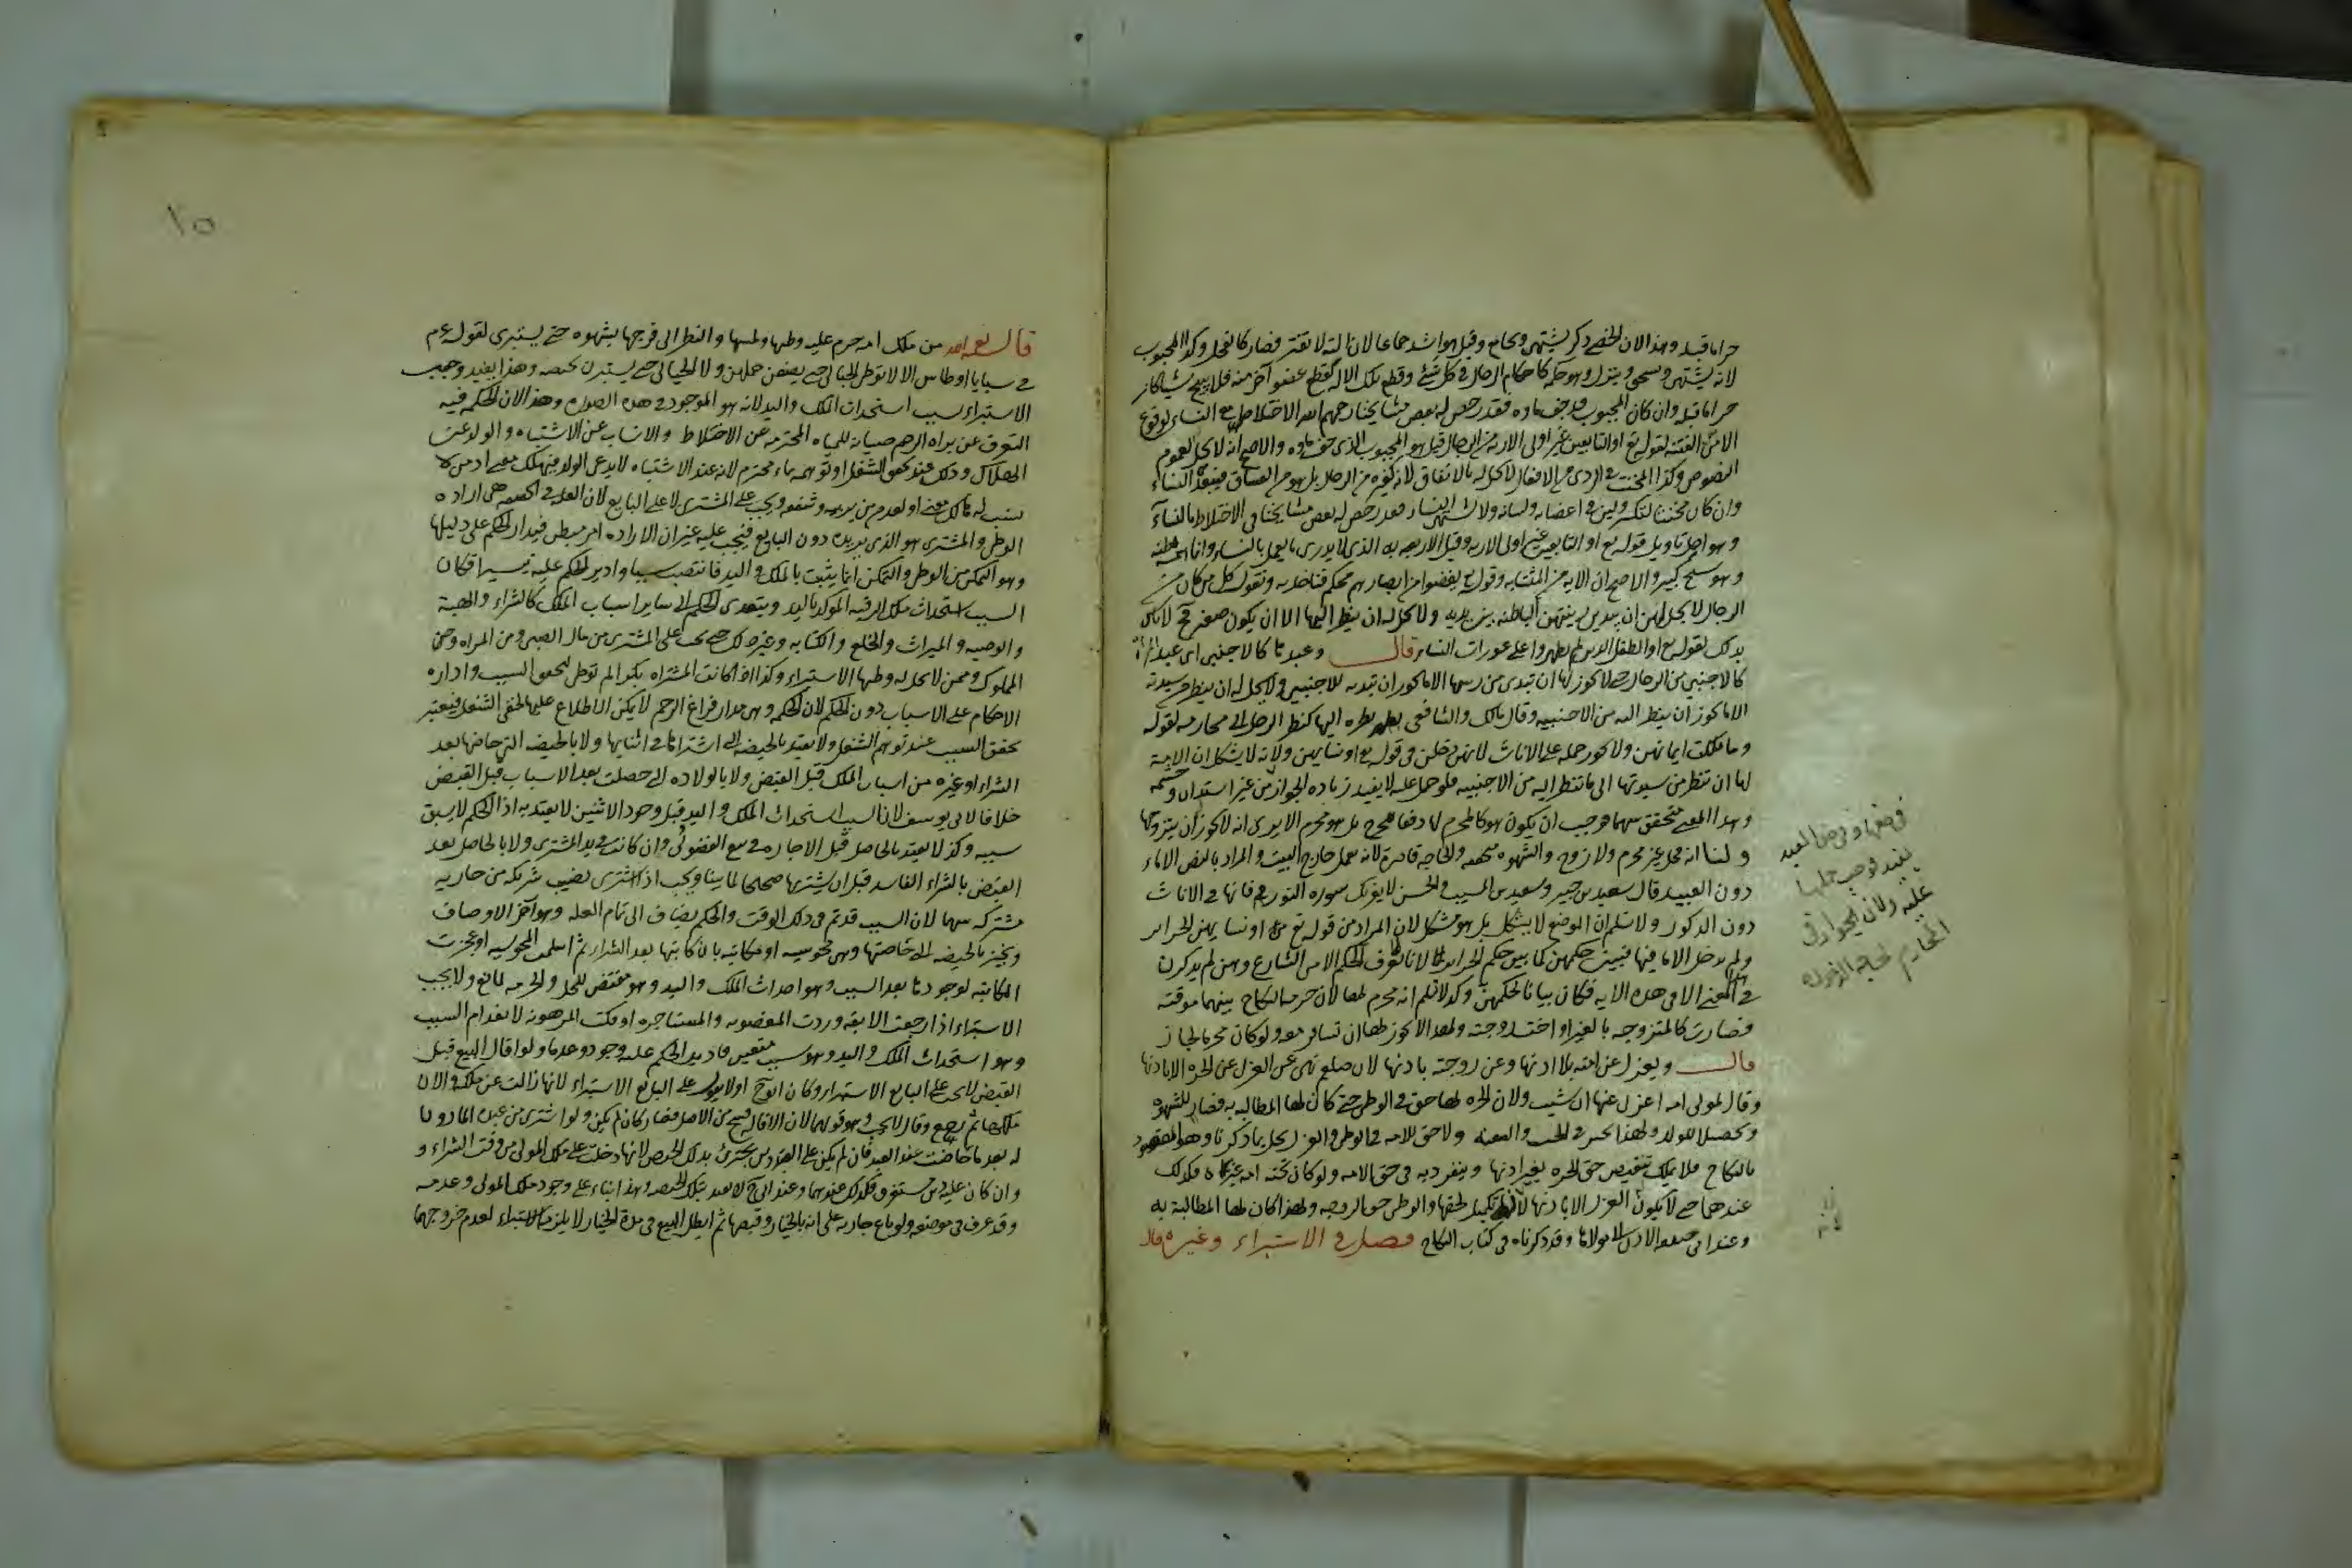 حراما قبله وهذا لان الخصى ذكر يشتهى ويجامع وقيل هو اشد جماعا لان الته لا تفتر فصار كالفحل وكذا المجبوب
لانه يشتهى ويسحق وينزل وهو حكمه كاحكام الرجال في كل شئ وقطع تلك الالة كقطع عضو آخر منه فلا يبيح شيأ كان
حراما قبله وان كان المجبوب قد جف ماوه فقد رخص له بعض مشايخنا رحمهم الله الاختلاط مع النساء لوقوع
الامن من الفتنة لقوله تع او التابعين غير اولى الاربة من الرجال قيل هو المجبوب الذى جف ماوه والاصح انه لا يحل لعموم
النصوص وكذا المخنث في الردى من الافعال لا يحل له بالاتفاق لانه كغيره من الرجال بل هو من الفساق فيبعد عن النساء
وان كان مخنثا لتكسر ولين في اعضايه ولسانه ولا يشتهى النساء فقد رخص له بعض مشايخنا في الاختلاط بالنساء
وهو احد تاويل قوله تع او التابعين غير اولى الاربة وقيل الاربعه به الذى لا يدرى ما يعمل بالنساء وانما همه بطنه
وهو شيخ كبير والاصح ان الاية من المتشابه وقوله تع يغضوا من ابصارهم محكم فناخذ به ونقول كل من كان من
الرجال لا يحل لهن ان يبدين زينتهن الباطنة بين يديه ولا يحل له ان ينظر اليها الا ان يكون صغيرا فح لا باس
بذلك لقوله تع او الطفل الذين لم يظهروا على عورات النساء قال وعبدها كالاجنبى اى عبد المرأة
كالاجنبى من الرجال حتى لا يجوز لها ان تبدى من زينتها الا ما يجوز ان تبديه للاجنبى ولا يحل له ان ينظر من سيدته
الا ما يجوز ان ينظر اليه من الاجنبيه وقال مالك والشافعى نظره اليها كنظر الرجل الى محارمه لقوله
وما ملكت ايمانهن ولا يجوز حمله على الاناث لانهن دخلن في قوله تع او نسايهن ولانه لا يشكل ان الامة
لها ان تنظر من سيدتها الى ما تنظر اليه من الاجنبية فلو حمل عليه لا يفيد زيادة الجواز من غير استيذان وحشمة
وهذا المعنى متحقق بينهما فوجب ان يكون هو كالمحرم لها دفعا للحرج بل هو محرم الا يرى انه لا يجوز ان يتزوجها
ولنا انه فحل غير محرم ولا زوج والشهوة متحققة والحاجة قاصرة لانه يعمل خارج البيت والمراد بالنص الاماء
دون العبيد قال سعيد بن جبير وسعيد بن المسيب والحسن لا يغرنك سورة النور فانها في الاناث
دون الذكور ولا نسلم ان الموضع لا يشكل بل هو مشكل لان المراد من قوله تع او نسايهن الحراير
ولم يدخل الاما فيها فبينت حكمهن كما بين حكم الحراير لانا لا نعرف الحكم الا من الشارع وهن لم يذكرن
في هذا المعنى الا في هذه الاية فكان بيانا لحكمهن وكذا لا نسلم انه محرم لها لان حرمة النكاح بينهما موقتة
فصارت كالمتزوجة بالغير او اخت زوجته ولهذا لا يجوز لها ان تسافر معه ولو كان محرما لجاز
قال ويعزل عن امته بلا اذنها وعن زوجته باذنها لان صلعم نهى عن العزل عن الحرة الا باذنها
وقال لمولى امة اعزل عنها ان شيت ولان الحرة لها حق في الوطئ حتى كان لها المطالبة به قضاء للشهوة
وتحصيلا للولد ولهذا تخير في الجب والعنة ولا حق للامة في الوطئ والعزل يخل بما ذكرنا وهو المقصود
بالنكاح فلا يملك تنقيص حق الحرة بغير اذنها وينفرد به في حق الامة ولو كان تحته امة غيره فكذلك
عندهما حتى لا يكون العزل الا باذنها لانه تكميل لحقها والوطئ حق الزوجة ولهذا كان لها المطالبة به
وعند ابى حنيفة الاذن لمولاها وقد ذكرناه في كتاب النكاح فصل في الاستبراء وغيره قال
عليه ولان
المحارم لحاجة
قال رحمه الله من ملك امة حرم عليه وطيها ولمسها والنظر الى فرجها بشهوة حتى يستبرى لقوله عم
في سبايا اوطاس الا لا توطئ الحبالى حتى يضعن حملهن ولا الحيالى حتى يستبرين بحيضة وهذا يفيد وجوب
الاستبراء بسبب استحداث الملك واليد لانه هو الموجود في هذه الصورة وهذا لان الحكمة فيه
التعرف عن براءة الرحم صيانة للمياه المحترمة عن الاختلاط والانساب عن الاشتباه والولد عن
الهلاك وذلك عند تحقق الشغل او توهمه بماء محترم لانه عند الاشتباه لا يدعى الولد فيهلك معنى اذ من لا
نسب له هالك معنى او لعدم من يربيه وينفعه ويجب على المشترى لا على البايع لان العلة في الحقيقة هى ارادة
الوطئ والمشترى هو الذى يريده دون البايع فيجب عليه غير ان الارادة امر مبطن فيدار الحكم على دليلها
وهو التمكن من الوطئ والتمكن انما يثبت بالملك واليد فانتصب سببا وادير الحكم عليه تيسيرا فكان
السبب استحداث ملك الرقبة الموكد باليد ويتعدى الحكم الى ساير اسباب الملك كالشراء والهبة
والوصية والميراث والخلع والكتابة وغير ذلك حتى يجب على المشترى من مال الصبى ومن المراة ومن
المملوك وممن لا يحل له وطيها الاستبراء وكذا اذا كانت المشتراة بكرا لم توطئ لتحقق السبب وادارة
الاحكام على الاسباب دون الحكم لان الحكمة وهى مدار فراغ الرحم لا يمكن الاطلاع عليها لخفى الشغل فيعتبر
تحقق السبب عند توهم الشغل ولا يعتد بالحيضة التى اشتراها في اثنايها ولا بالحيضة التى حاضها بعد
الشراء او غيره من اسباب الملك قبل القبض ولا بالولادة التى حصلت بعد الاسباب قبل القبض
خلافا لابى يوسف لان السبب استحداث الملك واليد قبل وجود الاثنين لا يعتد به اذ الحكم لا يسبق
سببه وكذا لا يعتد بالحاصل قبل الاجازة في بيع الفضولى وان كانت في يد المشترى ولا بالحاصل بعد
القبض بالشراء الفاسد قبل ان يشتريها صحيحا لما بينا ويجب اذا اشترى نصيب شريكه من جارية
مشتركة بينهما لان السبب قد تم في ذلك الوقت والحكم يضاف الى تمام العلة وهو آخر الاوصاف
ويجتزى بالحيضة التى حاضتها وهى مجوسية او مكاتبة بان كاتبها بعد الشراء ثم اسلمت المجوسية او عجزت
المكاتبة لوجودها بعد السبب وهو احداث الملك واليد وهو مقتض للحل والحرمة لمانع ولا يجب
الاستبراء اذا رجعت الابقة وردت المغصوبة والمستاجرة او فكت المرهونة لانعدام السبب
وهو استحداث الملك واليد وهو سبب متعين فادير الحكم عليه وجودا وعدما ولو اقال البيع قبل
القبض لا يجب على البايع الاستبراء وكان ابو ح اولا يقول على البايع الاستبراء لانها زالت عن ملكه والان
ملكها ثم رجع وقال لا يجب وهو قولهما لان الاقالة فسخ من الاصل فصار كان لم يكن ولو اشترى من عبده الماذون
له بعد ما حاضت عند العبد فان لم يكن على العبد دين يجتزئ بذلك الحيض لانها دخلت على ملك المولى من وقت الشراء و
وان كان عليه دين مستغرق فكذلك عندهما وعند ابى ح لا يعتد بتلك الحيضة وهذا بناء على وجود ملك المولى وعدمه
وقد عرف في موضعه ولو باع جارية على انه بالخيار وقبضها ثم ابطل البيع في مدة الخيار لا يلزمه الاستبراء لعدم خروجها
١٥